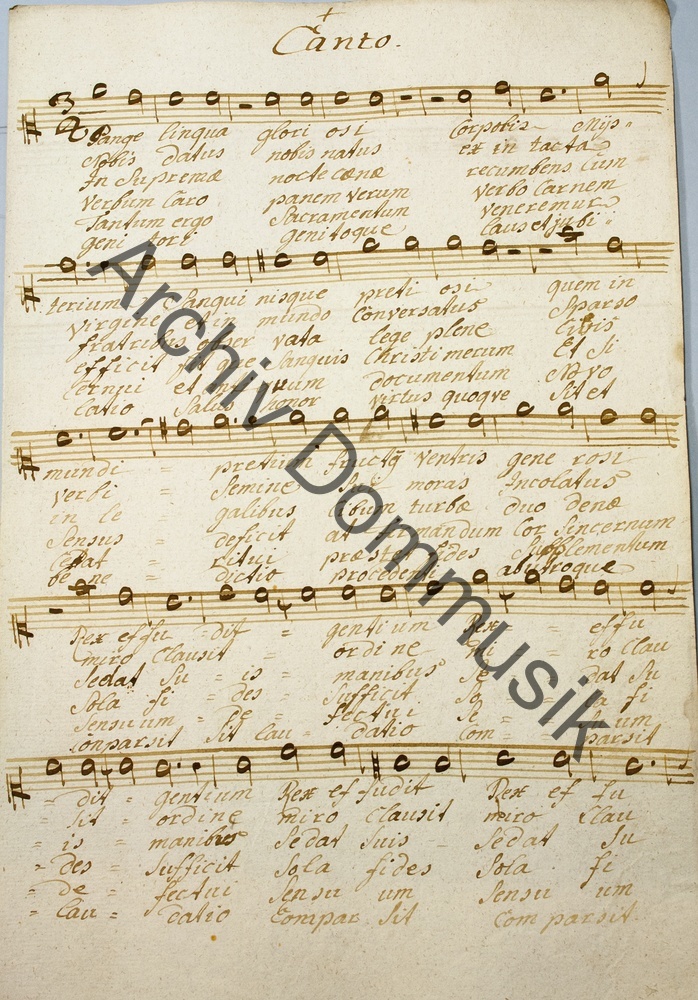 Canto.
Pange lingua glori osi Corporis Mys=
Nobis datus nobis natus ex in tacta
In Supremæ nocte cænæ recumbens cum
Verbum Caro panem verum verbo Carnem
Tantum ergo Sacramentum veneremur
geni tori genitoque laus et jubi=
terium Sangui nisque preti osi quem in
virgine et in mundo Conversatus Sparso
fratribus obser vata lege plene Cibis
efficit fit que Sanguis Christi merum Et Si
Cernui et documentum Novo
latio Salus honor virtus quoque Sit et
mundi = pretium fructq ventris gene rosi
verbi = Semine moras Incolatus
in le = galibus Cibum turbæ duo denæ
Sensus = deficit ad firmandum Cor Sincernum
Cedat = ritui præstet fides Supplementum
be ne = dictio procedenti ab utroque
Rex effu = dit = gentium Rex = effu
miro Clausit = ordine Mi = ro Clau
Sedat Su = is = manibus Se = dat Su
Sola fi = des = Sufficit So = la fi
Sensuum = de = fectui Se = = uum
Conparsit Sit lau = datio Com = = parsit
= dit = gentium Rex ef fudit Rex ef fu
= sit = ordine miro Clausit miro Clau
= is = manibus Sedat Suis Sedat Su
= des = Sufficit Sola fides Sola fi
= de = fectui Sensu um Sensu um
= lau = datio Compar Sit Com parsit
Archiv Dommusik